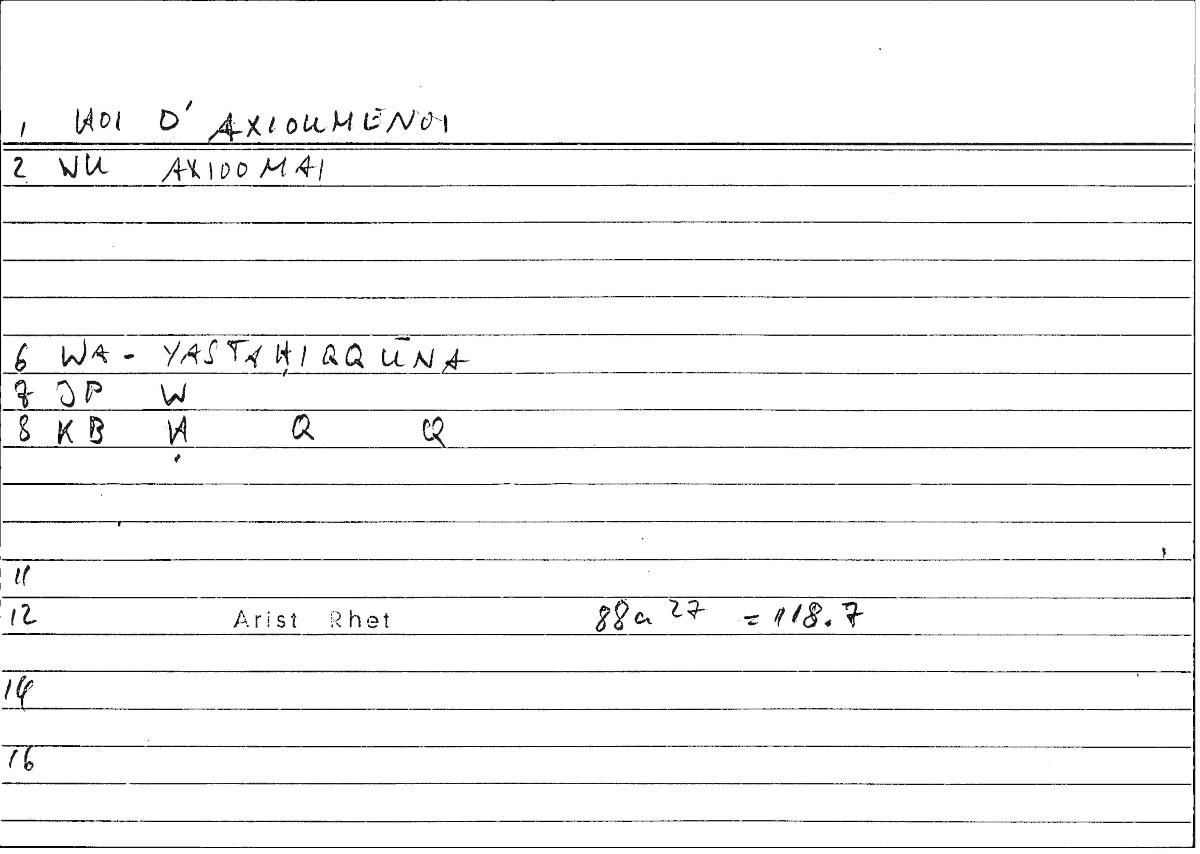 1 HOI D' AXIOUMENOI
2 WU AXIOOMAI
6 WA- YASTAḤIQQŪNA
7 JP W
8 KB Ḥ Q Q
11
12 Arist Rhet 88a 27 = 118.7
14
16